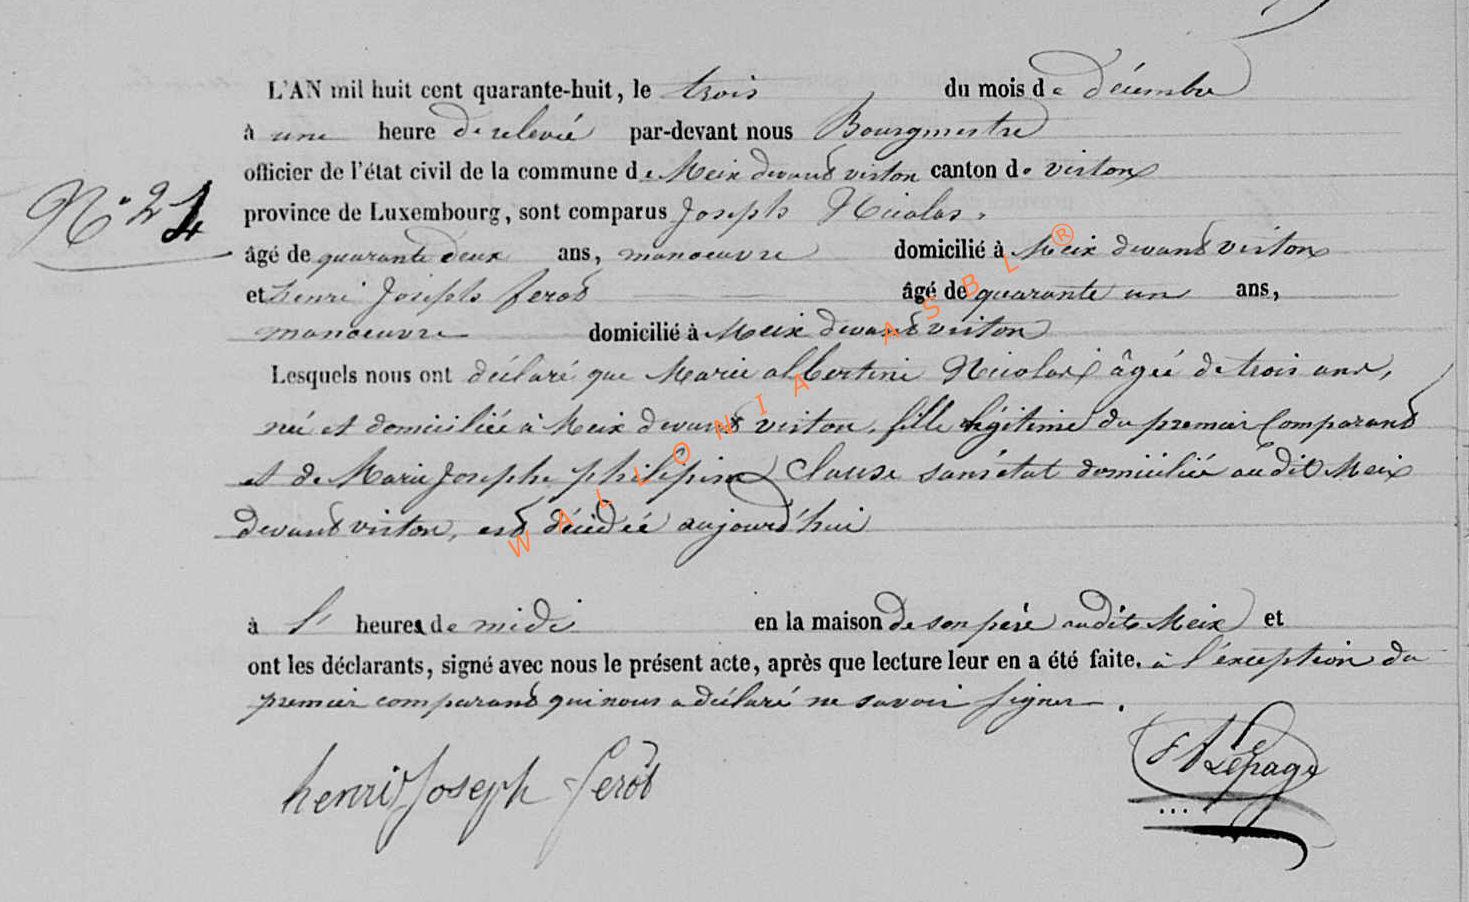 L'AN mil huit cent quarante-huit, le trois du mois de décembre
à une heure de relevée par-devant nous Bourgmestre
officier de l'état civil de la commune de Meix devant virton canton de virton
N° 24
province de Luxembourg, sont comparus Joseph Nicolas,
âgé de quarante deux ans, manoeuvre domicilié à Meix devant virton
et henri Joseph ferot âgé de quarante un ans,
manoeuvre domicilié à Meix devant virton
Lesquels nous ont déclaré que Marie albertine Nicolas âgée de trois ans,
née et domiciliée à Meix devant virton, fille légitime du premier Comparant
et de Marie Josephe philipine Clause sans état domiciliée audit Meix
devant virton, est décédée aujourd'hui
à l' heure de midi en la maison de son père audit Meix et
ont les déclarants, signé avec nous le présent acte, après que lecture leur en a été faite. à l'exception du
premier comparant qui nous a déclaré ne savoir signer.
henri Joseph ferot
Lepage
WALLONIA ASBL ®